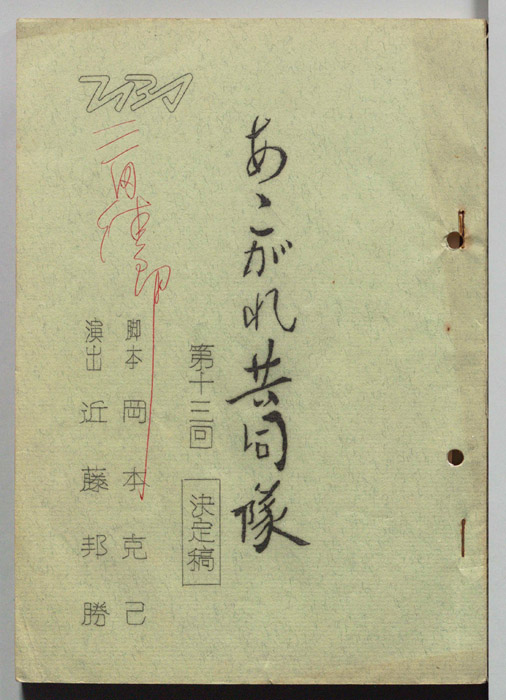 あこがれ共同隊
第十三回
決定稿
脚本 岡本克己
演出 近藤邦勝
TBS